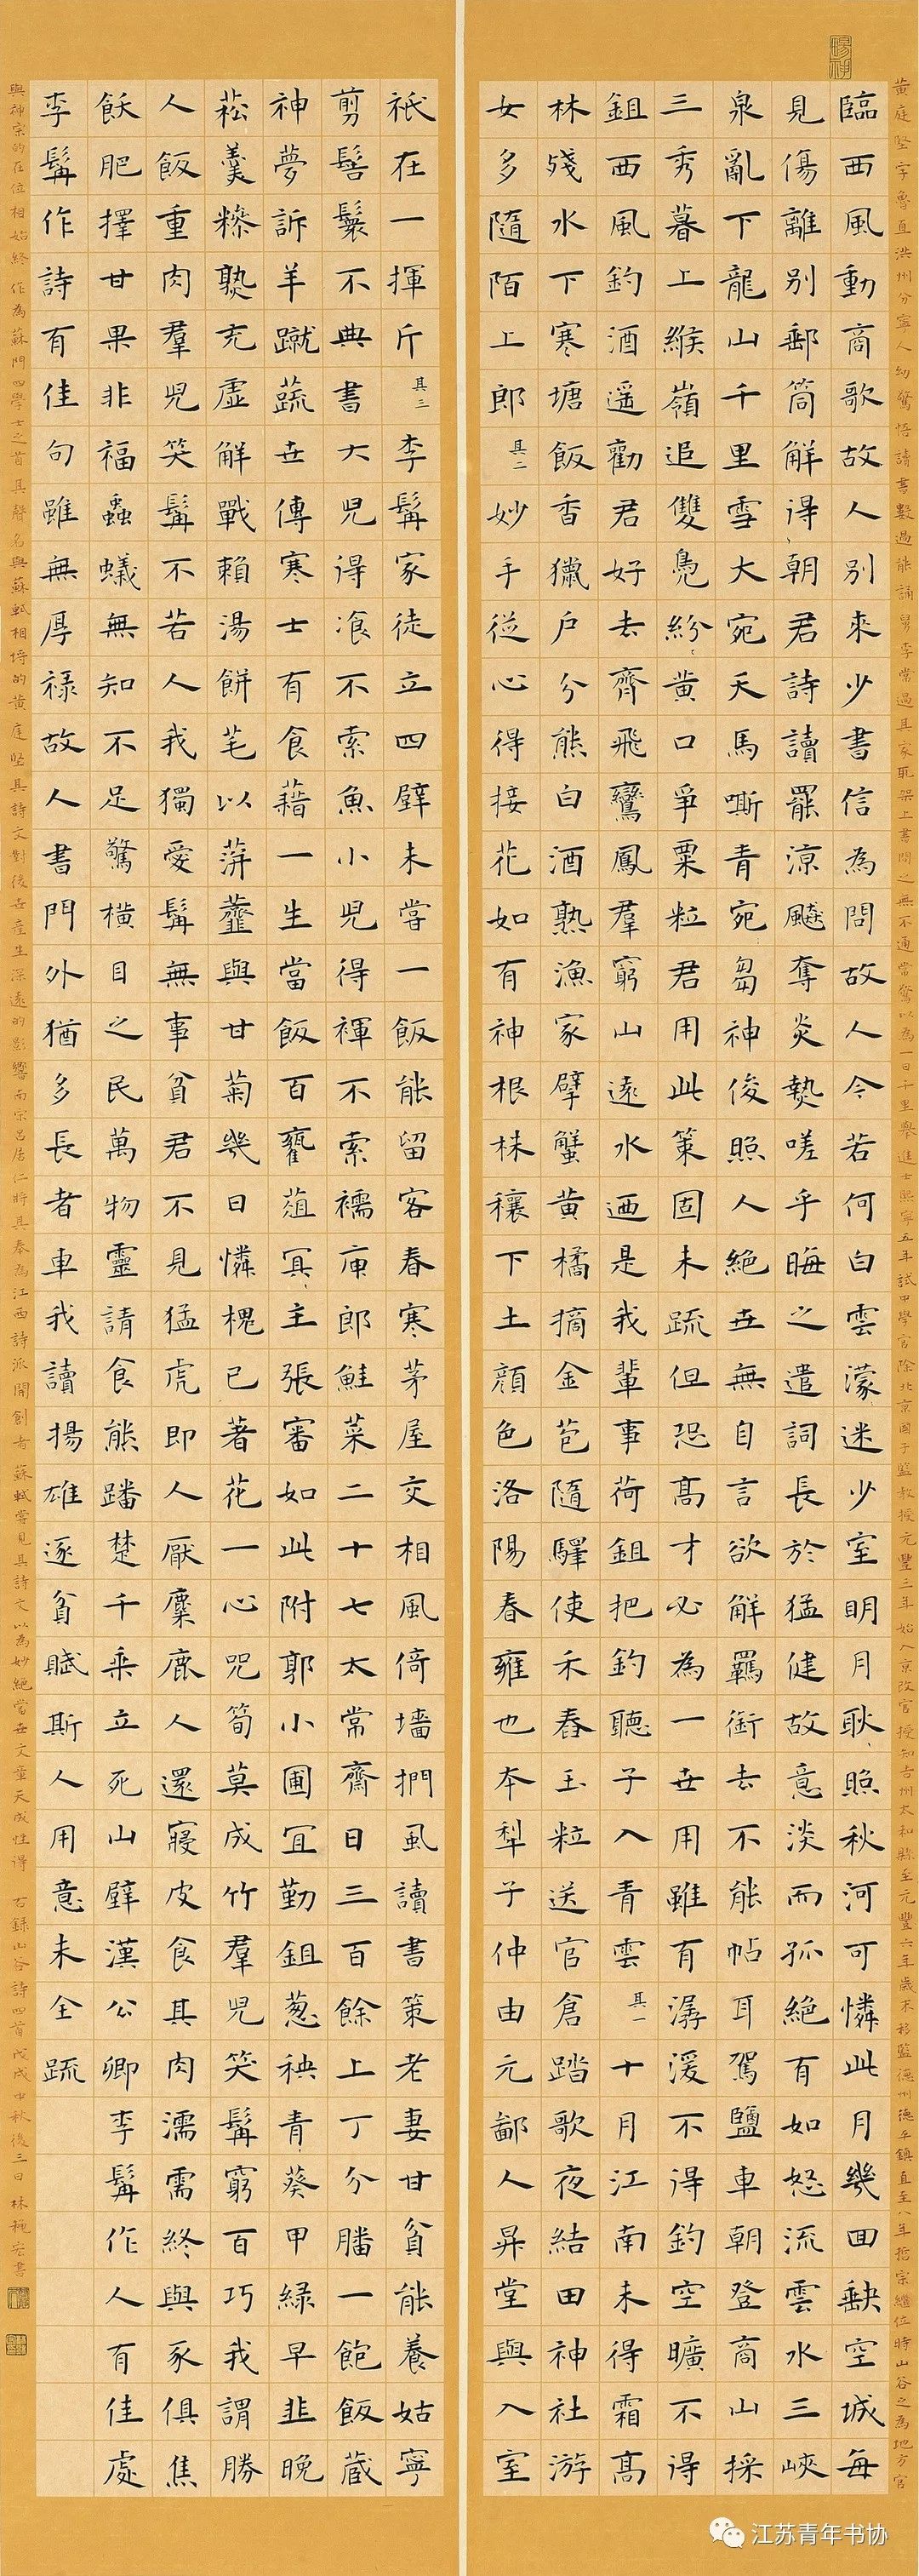 暢神
黃庭堅字魯直洪州分寧人幼驚悟讀書數過能誦舅李常過其家取架上書問之無不通常驚以為一日千里舉進士熙寧五年試中學官除北京國子監教授元豐三年始入京改官授知吉州太和縣至元豐六年歲末移監德州德平鎮直至八年哲宗繼位時山谷之為地方官
臨西風動商歌故人別來少書信為問故人今若何白雲濛迷少室明月耿照秋河可憐此月幾回缺空城每
見傷離別郵筒解得朝君詩讀罷涼飈奪炎熱嗟乎晦之遣詞長於猛健故意淡而孤絕有如怒流雲水三峽
泉亂下龍山千里雪大宛天馬嘶青宛芻神俊照人絕世無自言欲解羈銜去不能帖耳駕鹽車朝登商山採
三秀暮上緱嶺追雙鳧紛黃口爭粟粒君用此策固未疏但恐高才必為一世用雖有潺湲不得釣空曠不得
鉏西風釣酒遥勸君好去齊飛鸞鳳羣窮山遠水迺是我輩事荷鉏把釣聽子入青雲其一十月江南未得霜高
林殘水下寒塘飯香獵戶分熊白酒熟漁家擘蟹黃橘摘金苞隨驛使禾舂玉粒送官倉踏歌夜結田神社游
女多隨陌上郎其二妙手從心得接花如有神根株穰下土顏色洛陽春雍也本犁子仲由元鄙人昇堂與入室
祇在一揮斤其三李髯家徒立四壁未嘗一飯能留客春寒茅屋交相風倚墻捫虱讀書策老妻甘貧能養姑寧
剪髻鬟不典書大兒得飡不索魚小兒得褌不索襦庾郎鮭菜二十七太常齋日三百餘上丁分膰一飽飯蔵
神夢訴羊蹴蔬世傳寒士有食藉一生當飯百甕葅冥主張審如此附郭小圃宜勤鉏葱秧青葵甲綠早韭晚
菘羹糝熟充虛解戰賴湯餅芼以蓱虀與甘菊幾日憐槐已著花一心咒筍莫成竹羣兒笑髯窮百巧我謂勝
人飯重肉羣兒笑髯不若人我獨愛髯無事貧君不見猛虎即人厭麋鹿人還寢皮食其肉濡需終與豕俱焦
飫肥擇甘果非福蟲蟻無知不足驚橫目之民萬物靈請食熊蹯楚千乘立死山壁漢公卿李髯作人有佳處
李髯作詩有佳句雖無厚祿故人書門外猶多長者車我讀揚雄逐貧賦斯人用意未全疏
與神宗的在位相始終作為蘇門四學士之首其聲名與蘇軾相埒的黃庭堅其詩文對後世產生深遠的影響南宋呂居仁將其奉為江西詩派開創者蘇軾嘗見其詩文以為妙絕當世文章天成性得 右錄山谷詩四首戊戌中秋後三日 林書
江苏青年书协